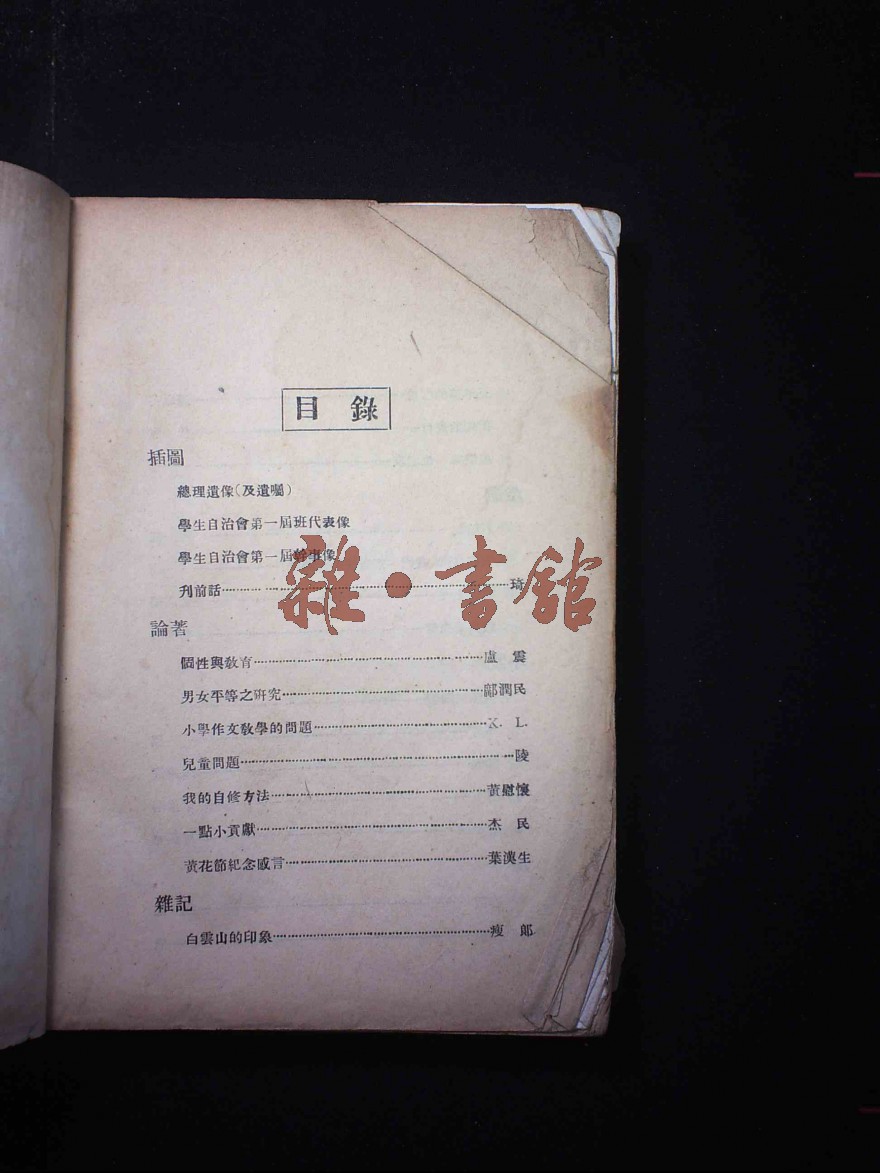 目錄
插圖
總理遺像(及遺囑)
學生自治會第一屆班代表像
學生自治會第一屆幹事像
刊前話……琦
論著
個性與教育……盧震
男女平等之研究……鄺潤民
小學作文教學的問題……K. L.
兒童問題……陵
我的自修方法……黃慰懷
一點小貢獻……杰民
黃花節紀念感言……葉漢生
雜記
白雲山的印象……瘦郞
雜•書館